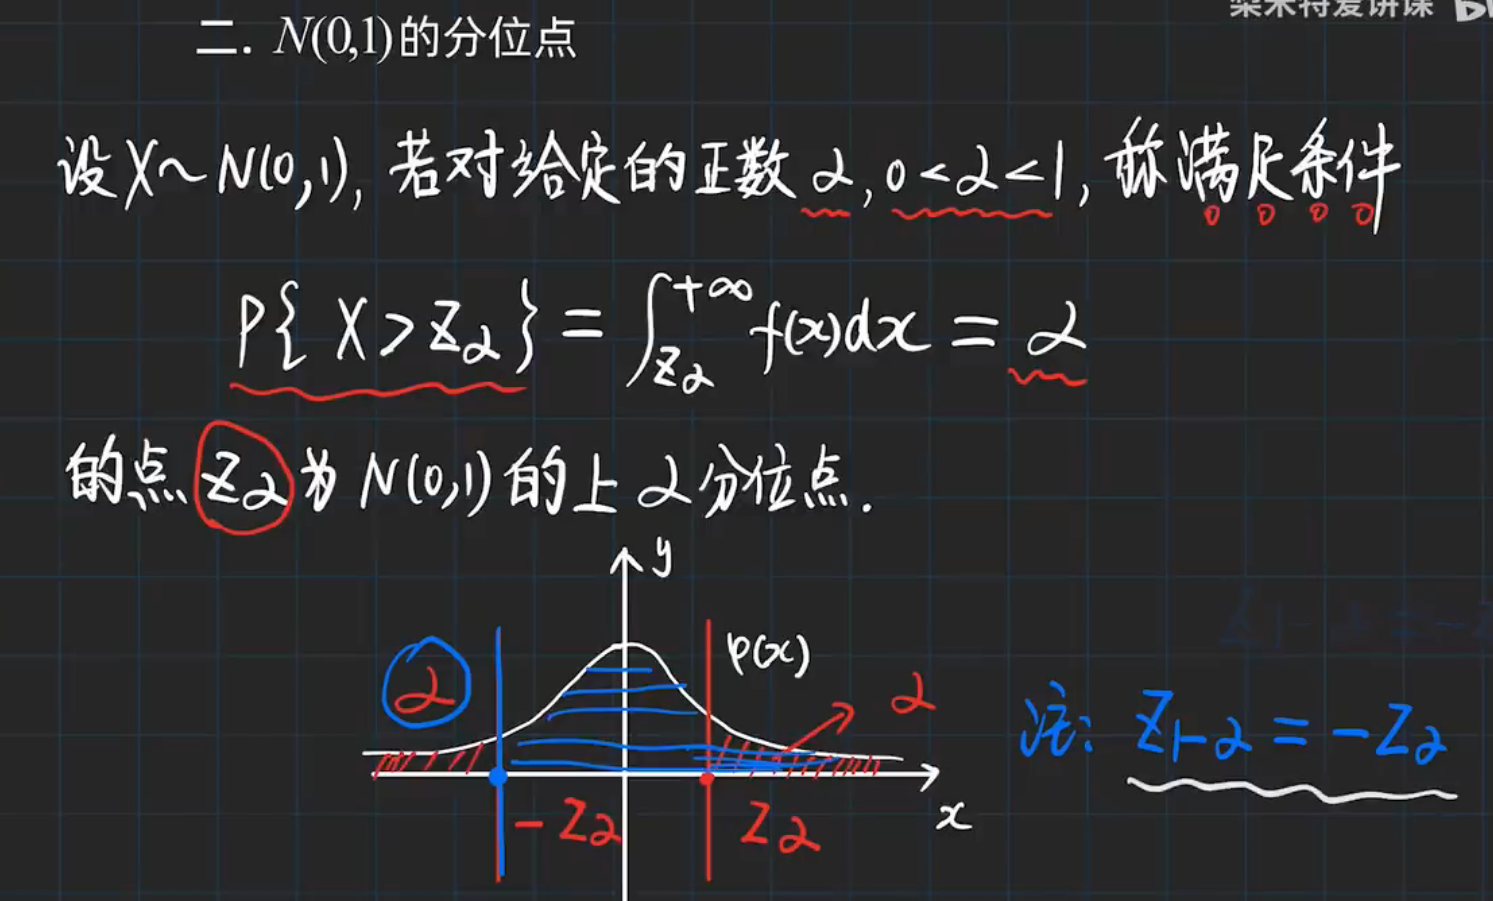 柒木特爱讲课
二. N(0,1)的分位点
设X~N(0,1), 若对给定的正数α, 0<α<1, 称满足条件
P{ X>Zα } = ∫_{Zα}^{+∞} f(x)dx = α
的点 Zα 为 N(0,1) 的上 α 分位点.
y
φ(x)
α
α
注: Z1-α = -Zα
-Zα
Zα
x